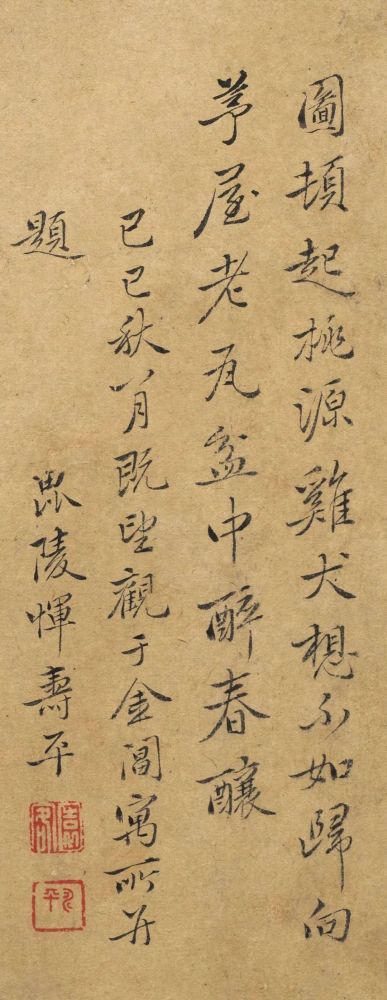 圖頓起桃源雞犬想不如歸向
茅屋老瓦盆中醉春釀
己巳秋八月既望觀于金閶寓所并
題
毘陵惲壽平
壽平